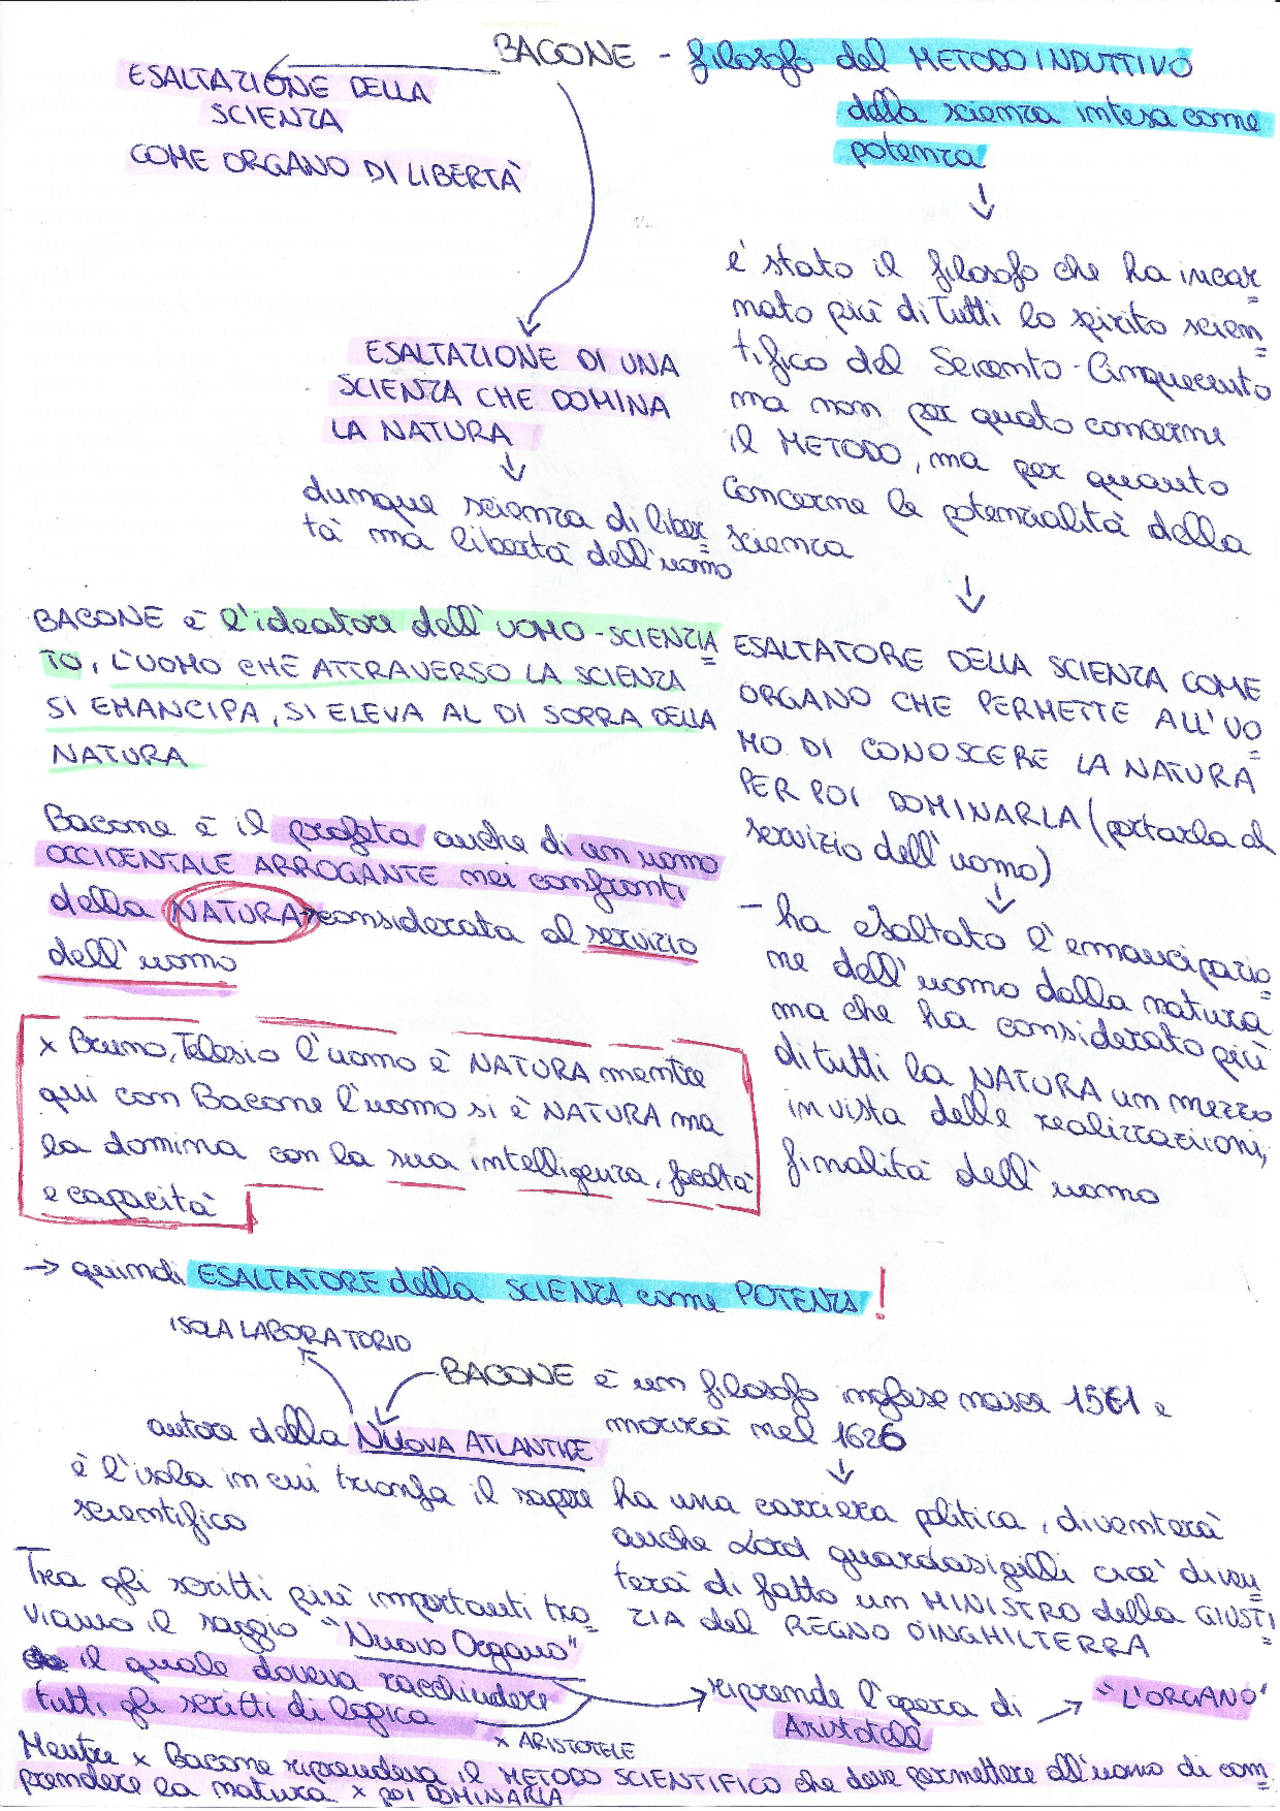 BACONE - filosofo del METODO INDUTTIVO
della scienza intesa come
potenza
ESALTAZIONE DELLA
SCIENZA
COME ORGANO DI LIBERTÀ
è stato il filosofo che ha incar
nato più di tutti lo spirito scien
tifico del Seicento-Cinquecento
ma non per quato concerne
il METODO, ma per quanto
concerne le potenzialità della
scienza
ESALTAZIONE DI UNA
SCIENZA CHE DOMINA
LA NATURA
dunque scienza di liber
tà ma libertà dell'uomo
ESALTATORE DELLA SCIENZA COME
ORGANO CHE PERMETTE ALL'UO
MO DI CONOSCERE LA NATURA
PER POI DOMINARLA (portarla al
servizio dell'uomo)
- ha esaltato l'emancipazio
ne dell'uomo dalla natura
ma che ha considerato più
di tutti la NATURA un mezzo
in vista delle realizzazioni,
finalità dell'uomo
BACONE è l'ideatore dell'UOMO-SCIENZIA
TO, L'UOMO CHE ATTRAVERSO LA SCIENZA
SI EMANCIPA, SI ELEVA AL DI SOPRA DELLA
NATURA
Bacone è il profeta anche di un uomo
OCCIDENTALE ARROGANTE nei confronti
della NATURA considerata al servizio
dell'uomo
x Bruno, Telesio l'uomo è NATURA mentre
qui con Bacone l'uomo si è NATURA ma
la domina con la sua intelligenza, facoltà
e capacità
→ quindi ESALTATORE della SCIENZA come POTENZA!
ISOLA LABORATORIO
BACONE è un filosofo inglese nasce 1561 e
morirà nel 1626
autore della NUOVA ATLANTIDE
è l'isola in cui trionfa il sapere
scientifico
ha una carriera politica, diventerà
anche Lord guardasigilli cioè diven
terà di fatto un MINISTRO della GIUSTI
ZIA del REGNO D'INGHILTERRA
Tra gli scritti più importanti tro
viamo il saggio "Nuovo Organo"
il quale doveva racchiudere
tutti gli scritti di logica
x ARISTOTELE
riprende l'opera di
Aristotele
→ "L'ORGANO"
Mentre x Bacone riprendeva il METODO SCIENTIFICO che deve permettere all'uomo di com
prendere la natura x poi DOMINARLA